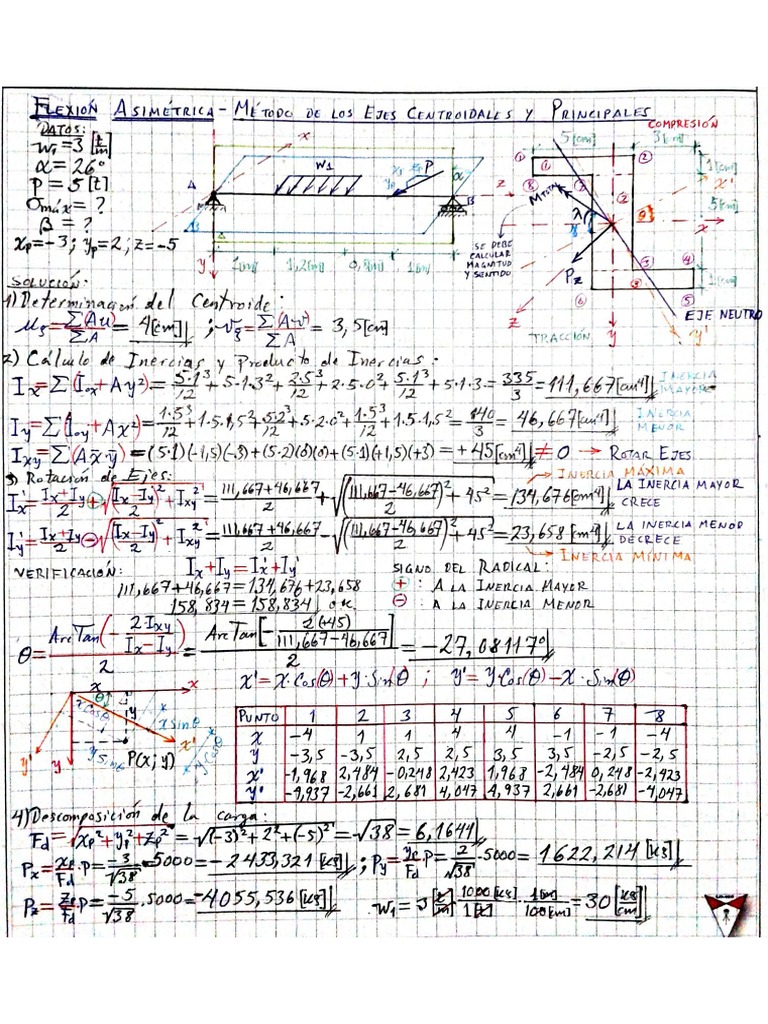 FLEXIÓN ASIMÉTRICA - MÉTODO DE LOS EJES CENTROIDALES Y PRINCIPALES
DATOS:
W₁=3 [t/m]
α=26°
P=5[t]
σmáx=?
β=?
xp=-3; yp=2; z=-5
x
W1
P
α
A
B
z
y
1[m] 1,2[m] 0,8[m] 1[m]
COMPRESIÓN
5[cm] 3[cm]
1[cm]
5[cm]
1[cm]
1 2 3 4 5 6 7 8
x'
x
λ
Pz
z
y
y'
SE DEBE CALCULAR MAGNITUD Y SENTIDO
EJE NEUTRO
TRACCIÓN
SOLUCIÓN:
1) Determinación del Centroide:
μς=Σ(Au)/ΣA=4[cm] ; vς=Σ(Av)/ΣA=3,5[cm]
2) Cálculo de Inercias y Producto de Inercias:
Ix=Σ(Iox+Ay²)=5·1³/12+5·1·3²+2·5³/12+2·5·0²+5·1³/12+5·1·3²=335/3=111,667[cm⁴] INERCIA MAYOR
Iy=Σ(Ioy+Ax²)=1·5³/12+1·5·1,5²+5·2³/12+5·2·0²+1·5³/12+1·5·1,5²=140/3=46,667[cm⁴] INERCIA MENOR
Ixy=Σ(Ax̄·ȳ)=(5·1)(-1,5)(-3)+(5·2)(0)(0)+(5·1)(+1,5)(+3)=+45[cm⁴]≠0 → ROTAR EJES
3) Rotación de Ejes:
INERCIA MÁXIMA
Ix'=Ix+Iy/2+√((Ix-Iy/2)²+Ixy²)=111,667+46,667/2+√((111,667-46,667/2)²+45²)=134,676[cm⁴] LA INERCIA MAYOR CRECE
Iy'=Ix+Iy/2-√((Ix-Iy/2)²+Ixy²)=111,667+46,667/2-√((111,667-46,667/2)²+45²)=23,658[cm⁴] LA INERCIA MENOR DECRECE
INERCIA MÍNIMA
VERIFICACIÓN: Ix+Iy=Ix'+Iy' SIGNO DEL RADICAL:
111,667+46,667=134,676+23,658 + : A LA INERCIA MAYOR
158,834=158,834 ok. - : A LA INERCIA MENOR
θ=ArcTan(-2Ixy/Ix-Iy)/2=ArcTan[-2(+45)/111,667-46,667]/2=-27,08117°
x'=x·Cos(θ)+y·Sin(θ) ; y'=y·Cos(θ)-x·Sin(θ)
x
x
θ
xCosθ
y
xSinθ
x'
ySinθ
P(x;y)
yCosθ
y'
y
PUNTO 1 2 3 4 5 6 7 8
x -4 1 1 4 4 -1 -1 -4
y -3,5 -3,5 2,5 2,5 3,5 3,5 -2,5 -2,5
x' -1,968 2,484 -0,248 2,423 1,968 -2,484 0,248 -2,423
y' -4,937 -2,661 2,681 4,047 4,937 2,661 -2,681 -4,047
4) Descomposición de la carga:
Fd=√xp²+yp²+zp²=√(-3)²+2²+(-5)²=√38=6,1644
Px=xp/Fd·P=-3/√38·5000=-2433,321[kg] ; Py=yp/Fd·P=2/√38·5000=1622,214[kg]
Pz=zp/Fd·P=-5/√38·5000=-4055,536[kg] . W₁=3[t/m]·1000[kg]/1[t]·1[m]/100[cm]=30[kg/cm]